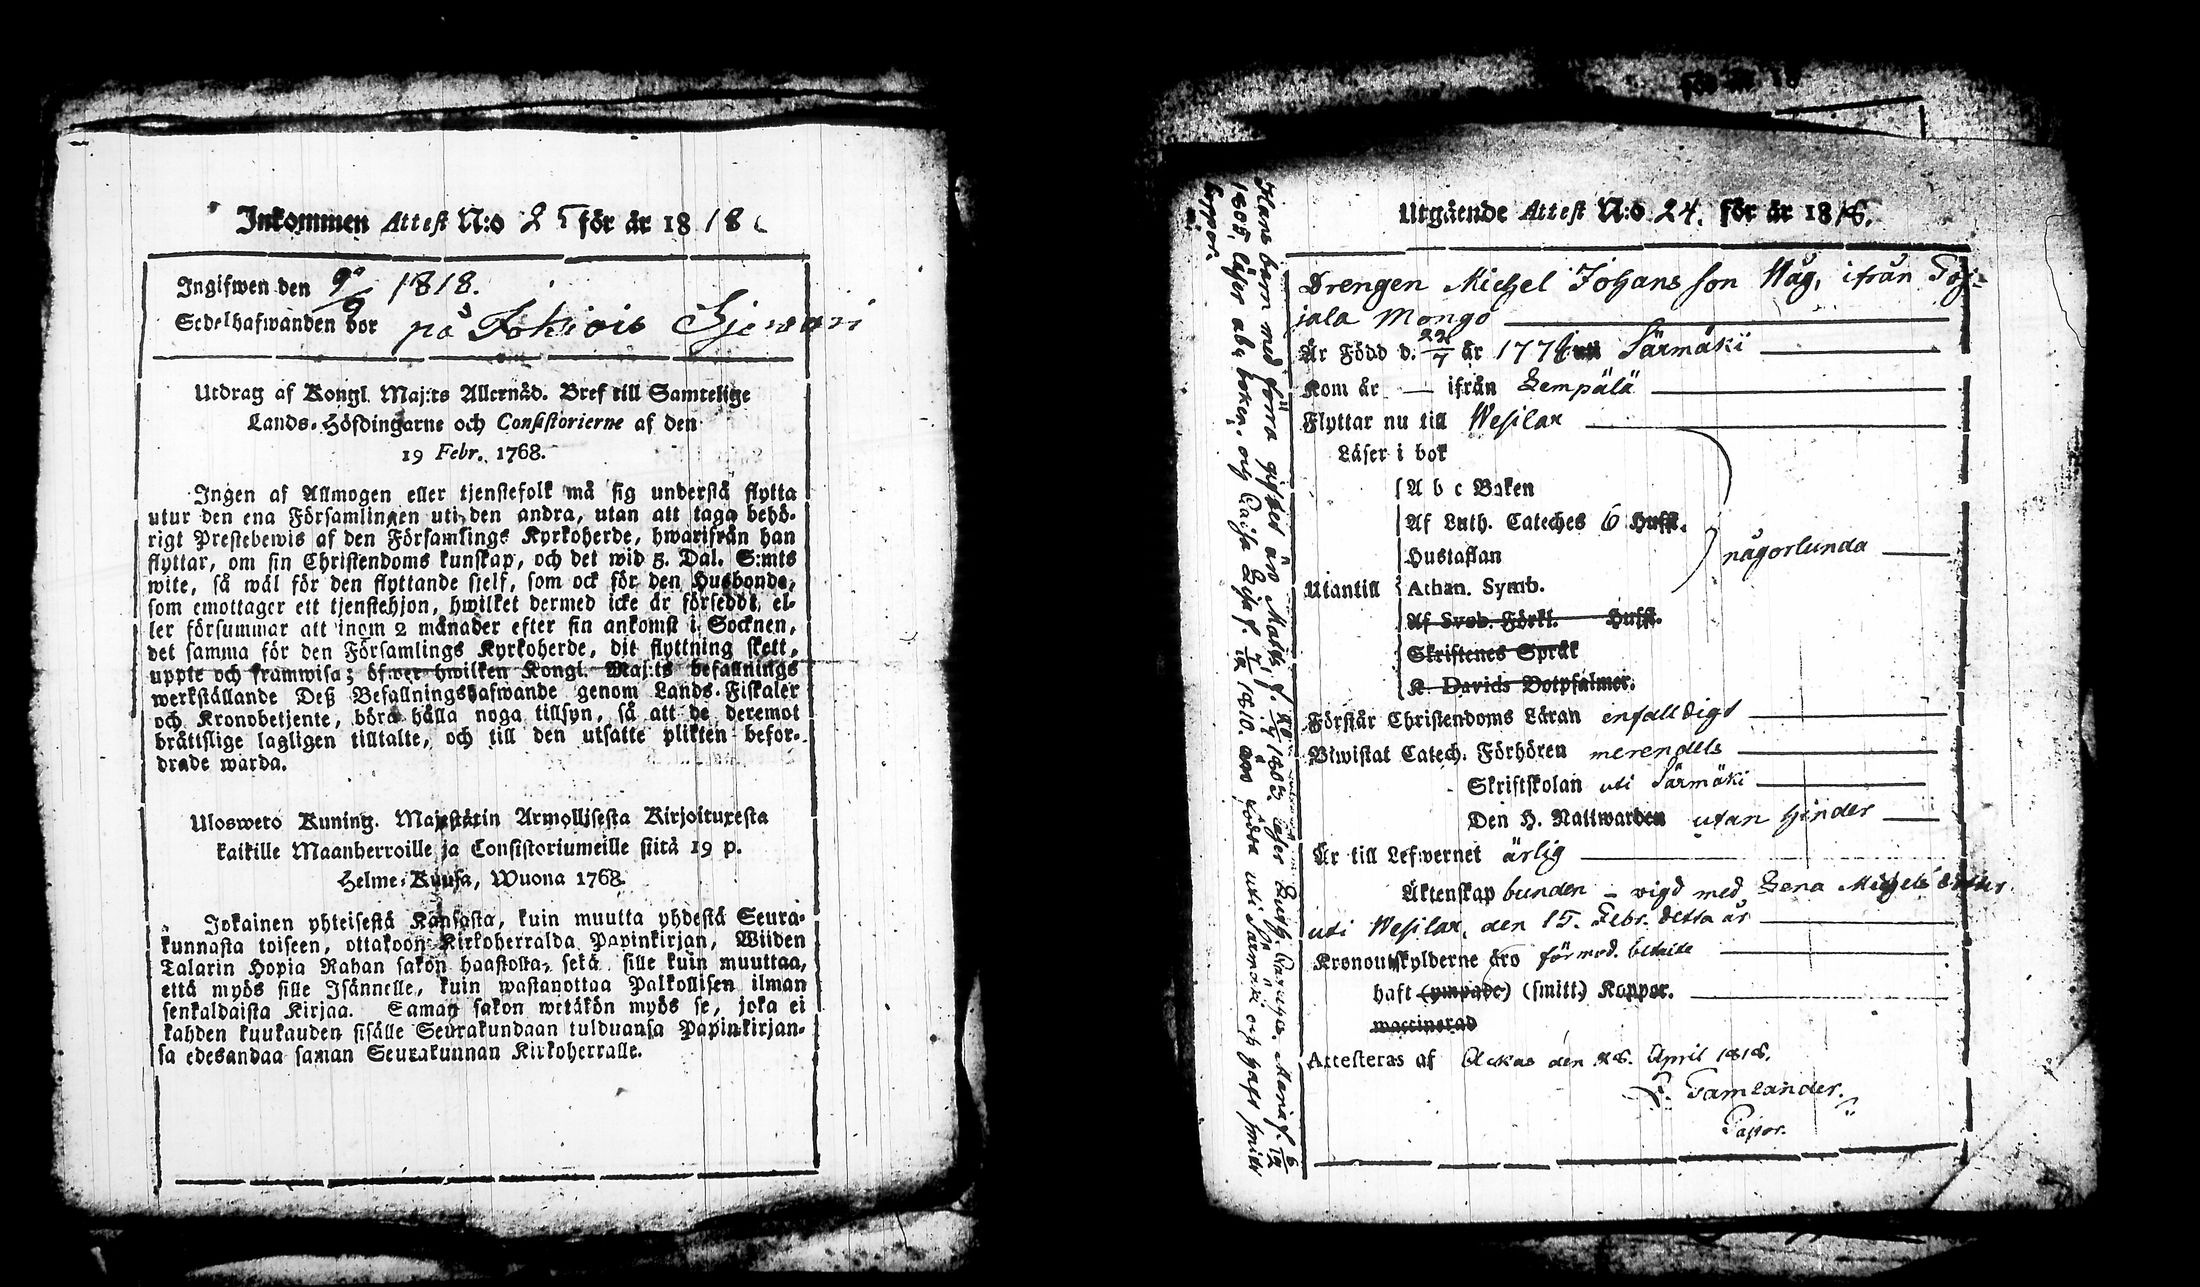 Inkommen Attest N:o 25 för år 1818.
Ingifwen den 9/9 1818.
Sedelhafwanden bor på Jokiois
Utdrag af Kongl. Maj:ts Allernåd. Bref till Samtelige
Lands-Höfdingarne och Consistorierne af den
19 Febr. 1768.
Ingen af Allmogen eller tjenstefolk må sig understå flytta
utur den ena Församlingen uti den andra, utan att taga behö-
rigt Prestebewis af den Församlings Kyrkoherde, hwarifrån han
flyttar, om sin Christendoms kunskap, och det wid 5. Dal. S:mts
wite, så wäl för den flyttande sjelf, som ock för den Husbonde,
som emottager ett tjenstehjon, hwilket dermed icke är förseddt, el-
ler försummar att inom 2 månader efter sin ankomst i Socknen,
det samma för den Församlings Kyrkoherde, dit flyttning skett,
uppte och framwisa; öfwer hwilken Kongl. Maj:ts befallnings
werkställande Deß Befallningshafwande genom Lands-Fiskaler
och Kronobetjente, böra hålla noga tillsyn, så att de deremot
bråttslige lagligen tilltalte, och till den utsatte plikten befor-
drade warda.
Uloswero Kuning. Majestätin Armollisesta Kirjoituxesta
kaikille Maanherroille ja Consistoriumeille siitä 19 p.
Helme-Kuusa, Wuona 1768.
Jokainen yhteisestä Kansasta, kuin muutta yhdestä Seura-
kunnasta toiseen, ottakoon Kirkoherralda Papinkirjan, Wiiden
Talarin Hopia Rahan sakon haastolta, sekä sille kuin muuttaa,
että myös sille Isännelle, kuin wastanottaa Palkollisen ilman
senkaldaista Kirjaa. Saman sakon wetäkön myös se, joka ei
kahden kuukauden sisälle Seurakundaan tulduansa Papinkirjan-
sa edesandaa saman Seurakunnan Kirkoherralle.
Utgående Attest N:o 24. för år 1818.
Drengen Michel Johansson Wåg, ifrån Toi-
jala Mongo
Är Född d. 22/7 år 177 uti Särmäki
Kom år — ifrån Lempälä
Flyttar nu till Wesilax
Läser i bok
A b c Boken
Af Luth. Cateches 6 Hufst.
Hustaflan
Utantill Athan. Symb.
någorlunda
Af Sweb. Förkl. Hufst.
Skriftenes Språk
K. Davids Botpsalmer.
Förstår Christendoms Läran enfalldigt
Biwistat Catech. Förhören merendels
Skriftskolan uti Särmäki
Den H. Nattwarden utan hinder
Är till Lefwernet ärlig
Äktenskap bunden – vigd med Lena Michelsdotter
uti Wesilax, den 15. Febr. detta år
Kronoutskylderne äro förmod. betalte
haft (ympade) (smitt) Koppor.
waccinerad
Attesteras af Ackas den 28. April 1818.
Tamlander.
Pastor.
Hans barn med förra giftet äro Matts f. läser Maria f. 6/12
1805, läser abc boken, och Caisa Lisa f. 7/12 1810. födda uti Särmäki och haft smitt
koppor.